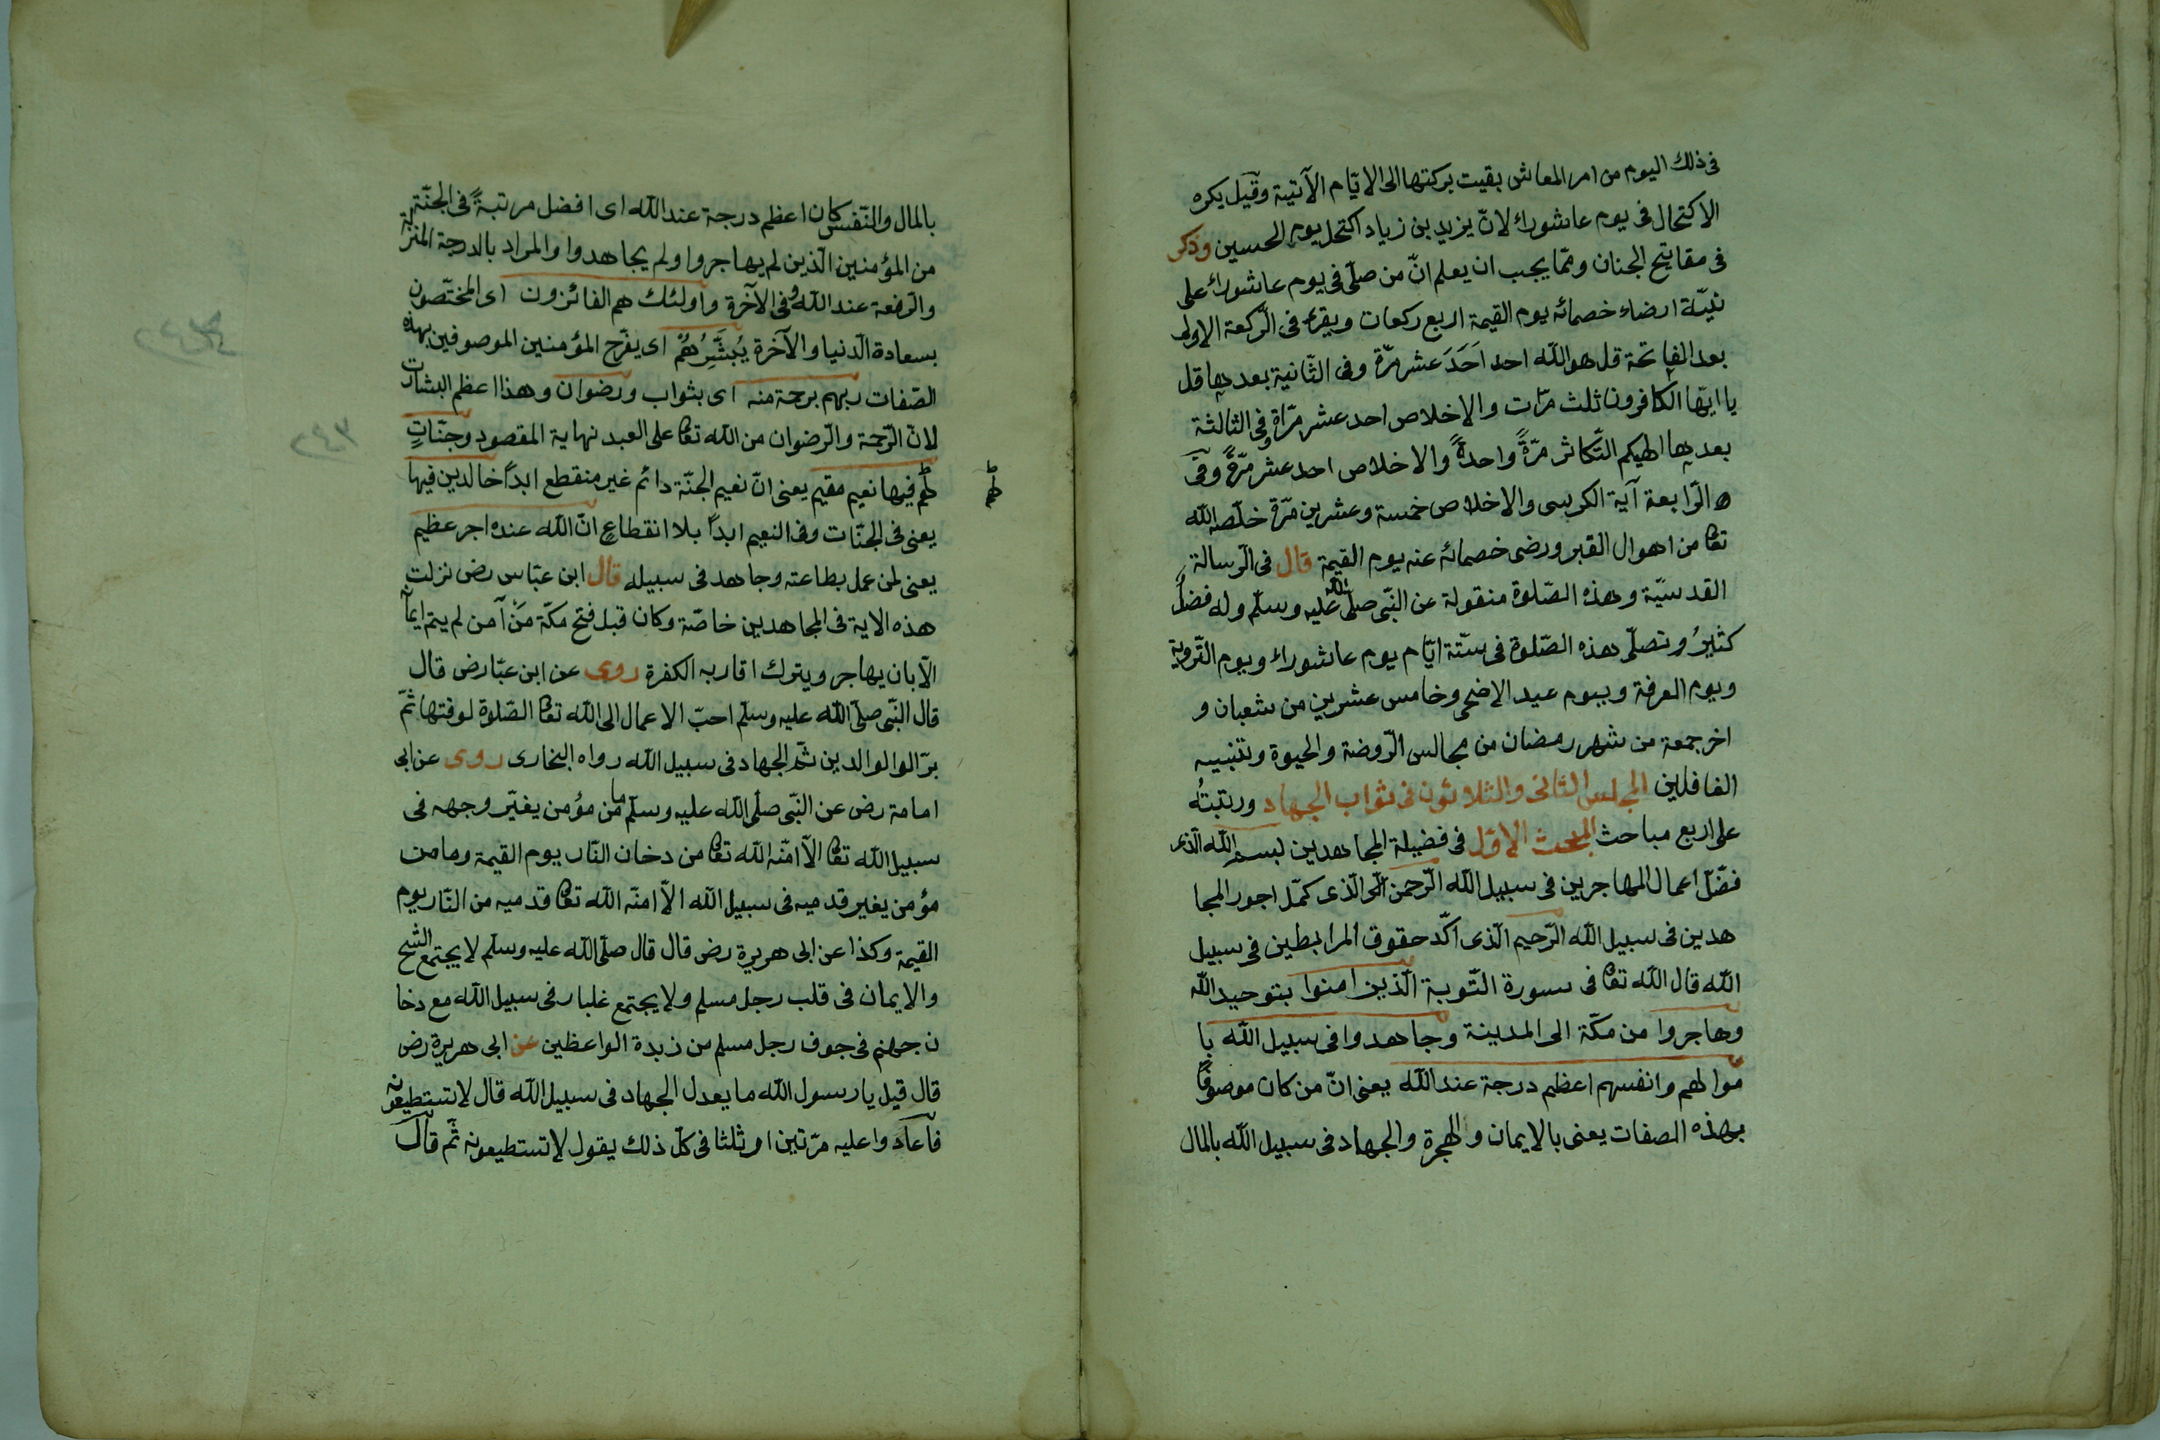 فى ذلك اليوم من امر المعاش بقيت بركتها الى الايّام الآتية وقيل يكره
الاكتحال فى يوم عاشوراء لانّ يزيد بن زياد اكتحل يوم الحسين وذكر
فى مفاتيح الجنان وممّا يجب ان يعلم انّ من صلّى فى يوم عاشوراء على
نيّة ارضاء خصمائه يوم القيمة اربع ركعات ويقرء فى الرّكعة الاولى
بعد الفاتحة قل هو الله احد اَحَدَ عشر مرّة وفى الثّانية بعدها قل
يا ايّها الكافرون ثلث مرّات والاخلاص احد عشر مرّاة وفى الثالثة
بعدها الهيكم التّكاثر مرّةً واحدةً والاخلاص احد عشر مرّةً وفى
الرّابعة آية الكرسى والاخلاص خمسة وعشرين مرّة خلّصه الله
تعا من اهوال القبر ورضى خصمائه عنه يوم القيمة قال فى الرّسالة
القدسيّة وهذه الصّلوة منقولة عن النّبى صلّى الله عليه وسلّم وله فضلٌ
كثيرٌ وتصلّى هذه الصّلوة فى ستّة ايّام يوم عاشوراء ويوم التّروية
ويوم العرفة ويوم عيد الاضحى وخامس عشرين من شعبان و
اخر جمعة من شهر رمضان من مجالس الرّوضة والحيوة وتنبيه
الغافلين المجلس الثانى والثلاثون فى ثواب الجهاد ورتبتُه
على اربع مباحث المبحث الاوّل فى فضيلة المجاهدين بسم الله الّذى
فضّل اعمال المهاجرين فى سبيل الله الرّحمن الّذى كمّل اجور المجا
هدين فى سبيل الله الرّحيم الّذى اكّد حقوق المرابطين فى سبيل
الله قال الله تعا فى سورة التّوبة الّذين امنوا بتوحيد الله
وهاجروا من مكّة الى المدينة وجاهدوا فى سبيل الله با
موالهم وانفسهم اعظم درجة عند الله يعنى انّ من كان موصوفًا
بهذه الصفات يعنى بالايمان والهجرة والجهاد فى سبيل الله بالمال
بالمال والنّفس كان اعظم درجة عند الله اى افضل مرتبةً فى الجنّة
من المؤمنين الّذين لم يهاجروا ولم يجاهدوا والمراد بالدرجة المنزلة
والرّفعة عند الله وفى الآخرة واولئك هم الفائزون اى المختصّون
بسعادة الدّنيا والآخرة يُبَشِّرُهُمْ اى يفرّح المؤمنين الموصوفين بهذه
الصّفات ربهم برحمة منه اى بثواب ورضوان وهذا اعظم البشارات
لانّ الرّحمة والرّضوان من الله تعا على العبد نهاية المقصود وجنّاتٍ
لهم فيها نعيم مقيم يعنى انّ نعيم الجنّة دائم غير منقطع ابداً خالدين فيها
لهم
يعنى فى الجنّات وفى النعيم ابداً بلا انقطاع انّ الله عنده اجر عظيم
يعنى لمن عمل بطاعته وجاهد فى سبيله قال ابن عبّاس رض نزلت
هذه الاية فى المجاهدين خاصّة وكان قبل فتح مكّة مَنْ آمن لم يتم ايمانه
الّا بان يهاجر ويترك اقاربه الكفرة روى عن ابن عبّا رض قال
قال النّبى صلّى الله عليه وسلّم احبّ الاعمال الى الله تعا الصّلوة لوقتها ثمّ
برّ الوالوالدين ثمّ الجهاد فى سبيل الله رواه البخارى روى عن ابى
امامة رض عن النّبى صلّى الله عليه وسلّم ما من مؤمن يغبّر وجهه فى
سبيل الله تعا الّا امنه الله تعا من دخان النّار يوم القيمة وما من
مؤمن يغبر قدميه فى سبيل الله الّا امنه الله تعا قدميه من النّار يوم
القيمة وكذا عن ابى هريرة رض قال قال صلّى الله عليه وسلم لا يجتمع الشح
والايمان فى قلب رجل مسلم ولا يجتمع غلبار فى سبيل الله مع دخا
ن جهنم فى جوف رجل مسلم من زبدة الواعظين عن ابى هريرة رض
قال قيل يا رسول الله ما يعدل الجهاد فى سبيل الله قال لا تستطيعونه
فاعادوا عليه مرّتين او ثلثا فى كلّ ذلك يقول لا تستطيعونه ثمّ قال